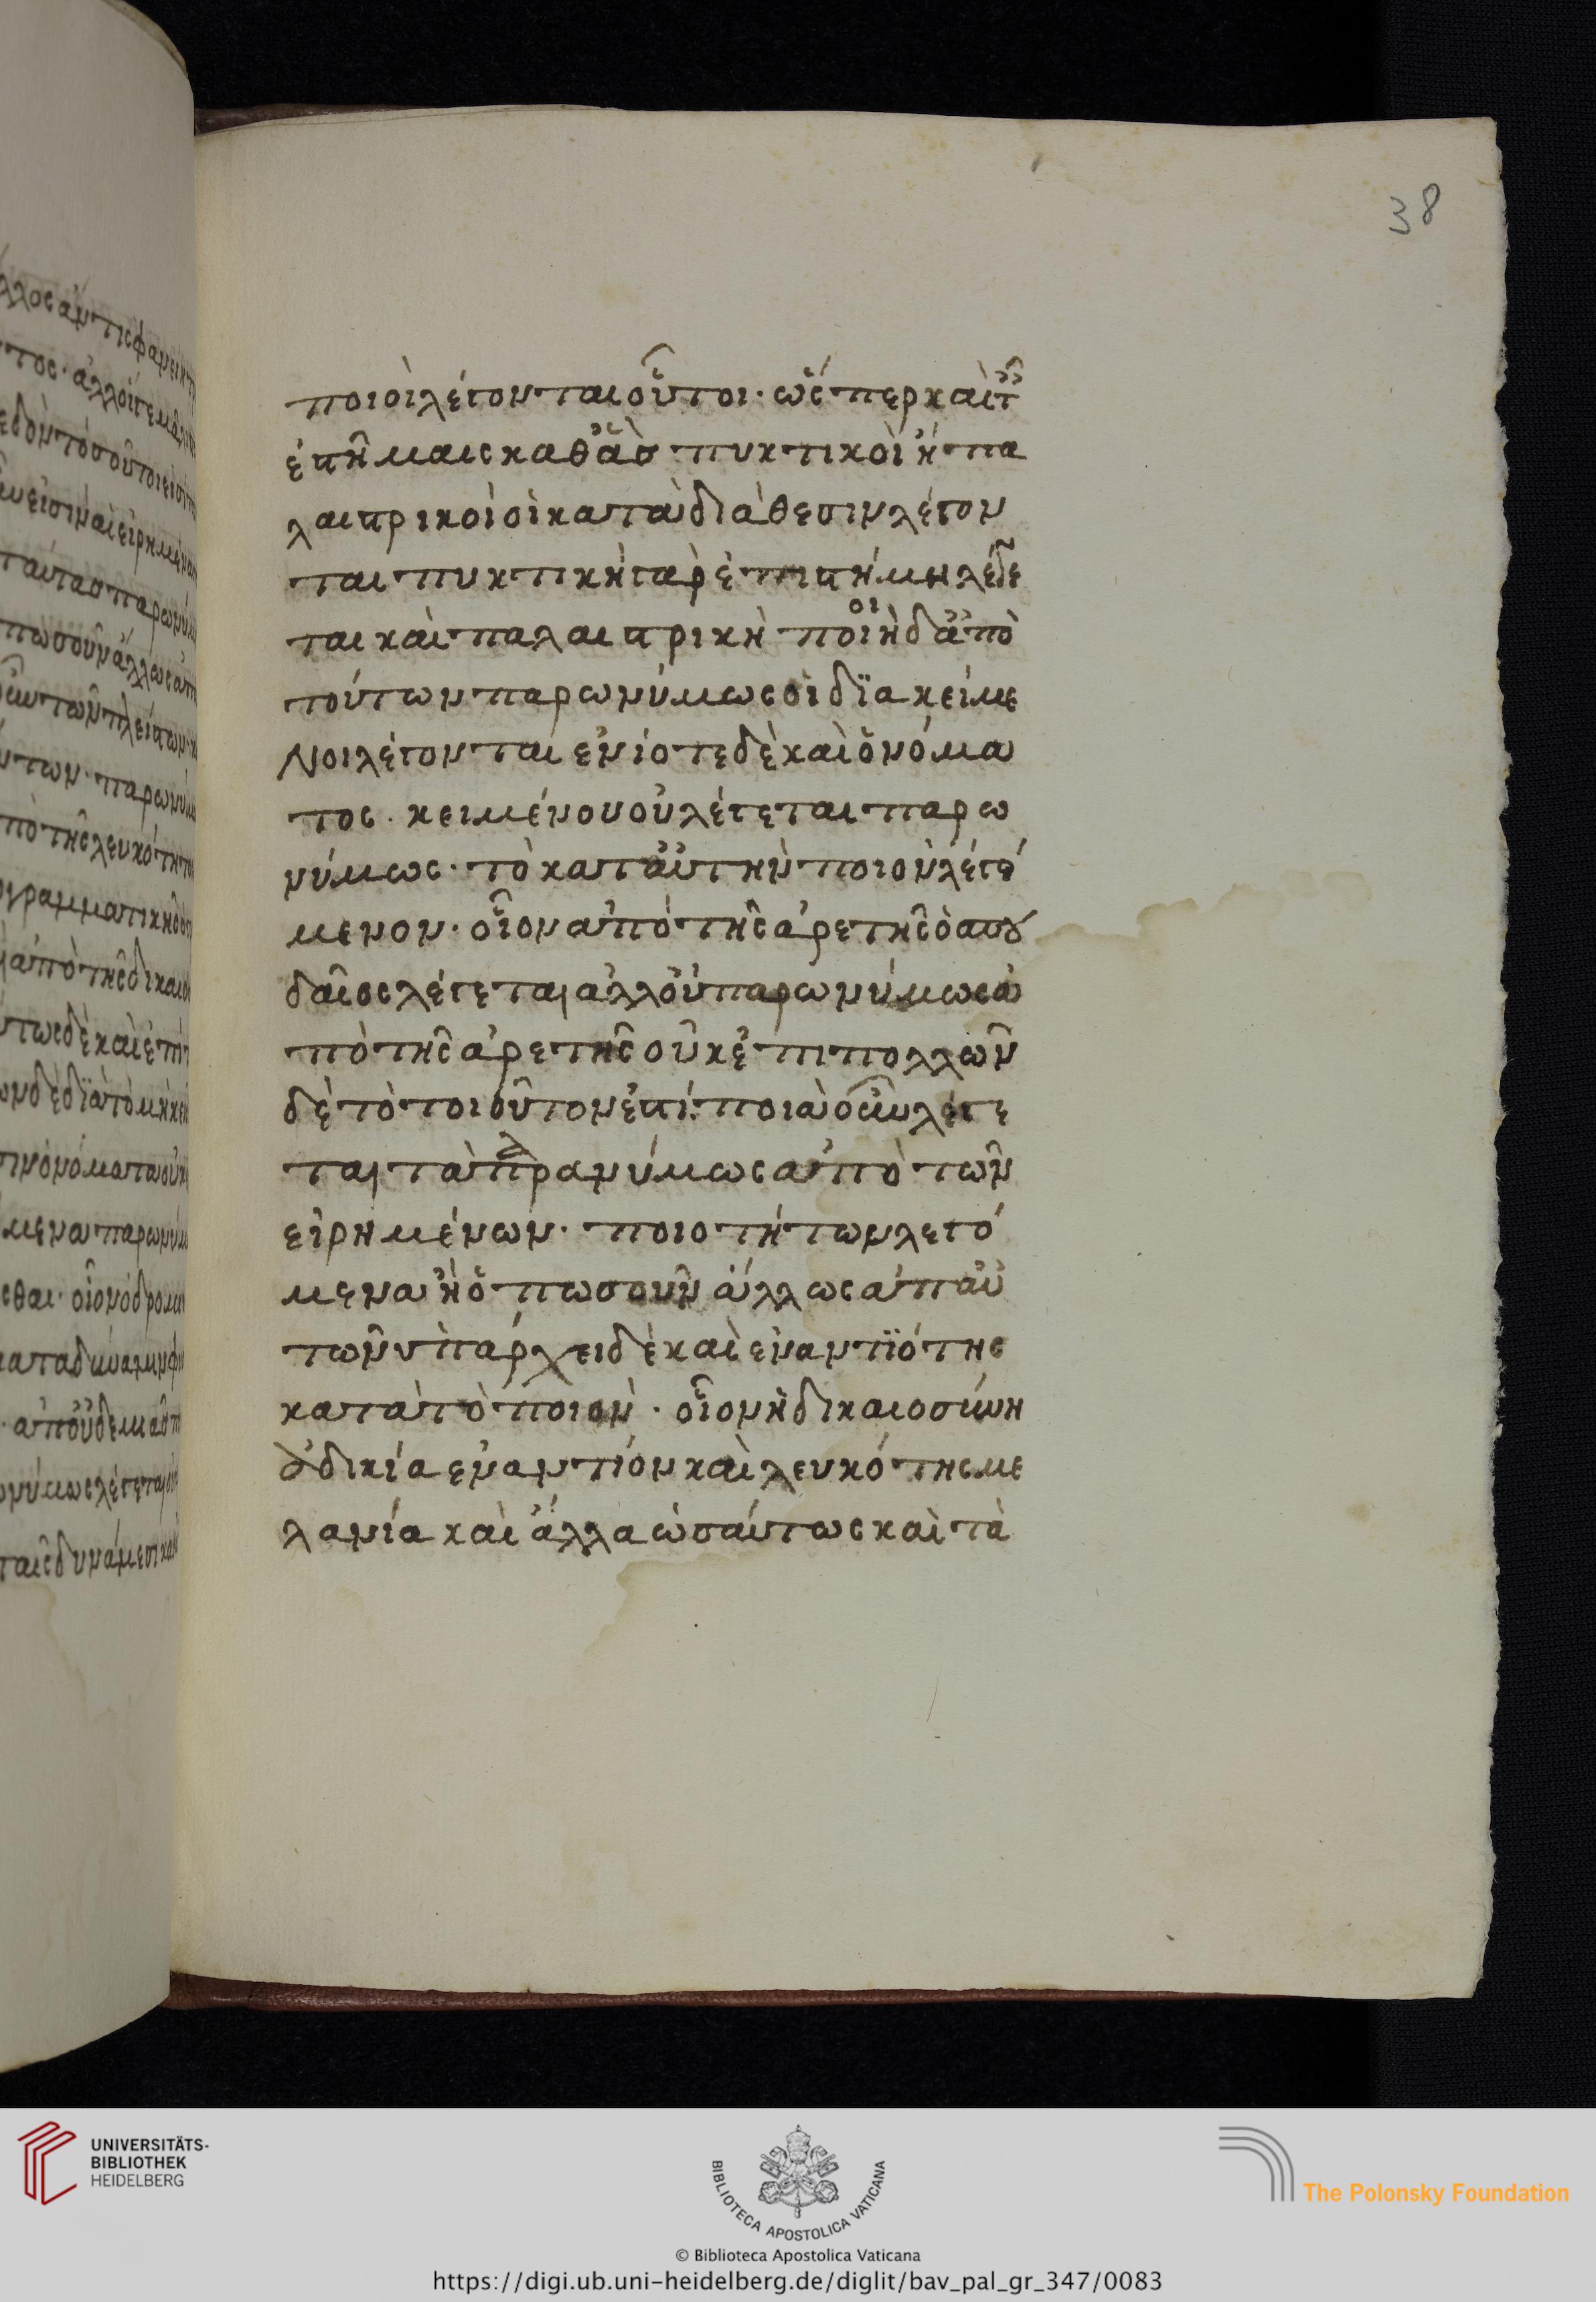 38
ποιοὶ λέγονται οὗτοι· ὥσπερ καὶ τ
ἐπιστήμαις καθ' ἃσ πυκτικοὶ ἢ πα
λαιστρικοὶ οἱ κατὰ διάθεσιν λέγον
ται πυκτικὴ γὰρ ἐπιστήμη λέγε
ται καὶ παλαιστρικὴ ποιοὶ ἡ δ' ἀπὸ
τούτων παρωνύμως οἱ διακείμε
νοι λέγονται ἐνίοτε δὲ καὶ ὀνόμα
τος· κειμένου οὐ λέγεται παρω
νύμως· τὸ κατ' αὐτὴν ποιὸν λεγό
μενον· οἷον ἀπὸ τῆς ἀρετῆς ὁ σπου
δαῖος λέγεται ἀλλ' οὐ παρωνύμως ἀ
πὸ τῆς ἀρετῆς οὐκ ἐπὶ πολλῶν
δὲ τὸ τοιοῦτον ἐστί· ποιὰ οὖν λέγε
ται τὰ παρανύμως ἀπὸ τῶν
εἰρημένων· ποιοτήτων λεγό
μενα ἢ ὁπωσοῦν ἄλλως ἀπ' αὐ
τῶν ὑπάρχει δὲ καὶ ἐναντιότης
κατὰ τὸ ποιὸν· οἷον ἡ δικαιοσύνη
ἀδικία ἐναντίον καὶ λευκότης με
λανία καὶ ἄλλα ὡσαύτως καὶ τὰ
UNIVERSITÄTS-
BIBLIOTHEK
HEIDELBERG
BIBLIOTECA APOSTOLICA VATICANA
The Polonsky Foundation
© Biblioteca Apostolica Vaticana
https://digi.ub.uni-heidelberg.de/diglit/bav_pal_gr_347/0083